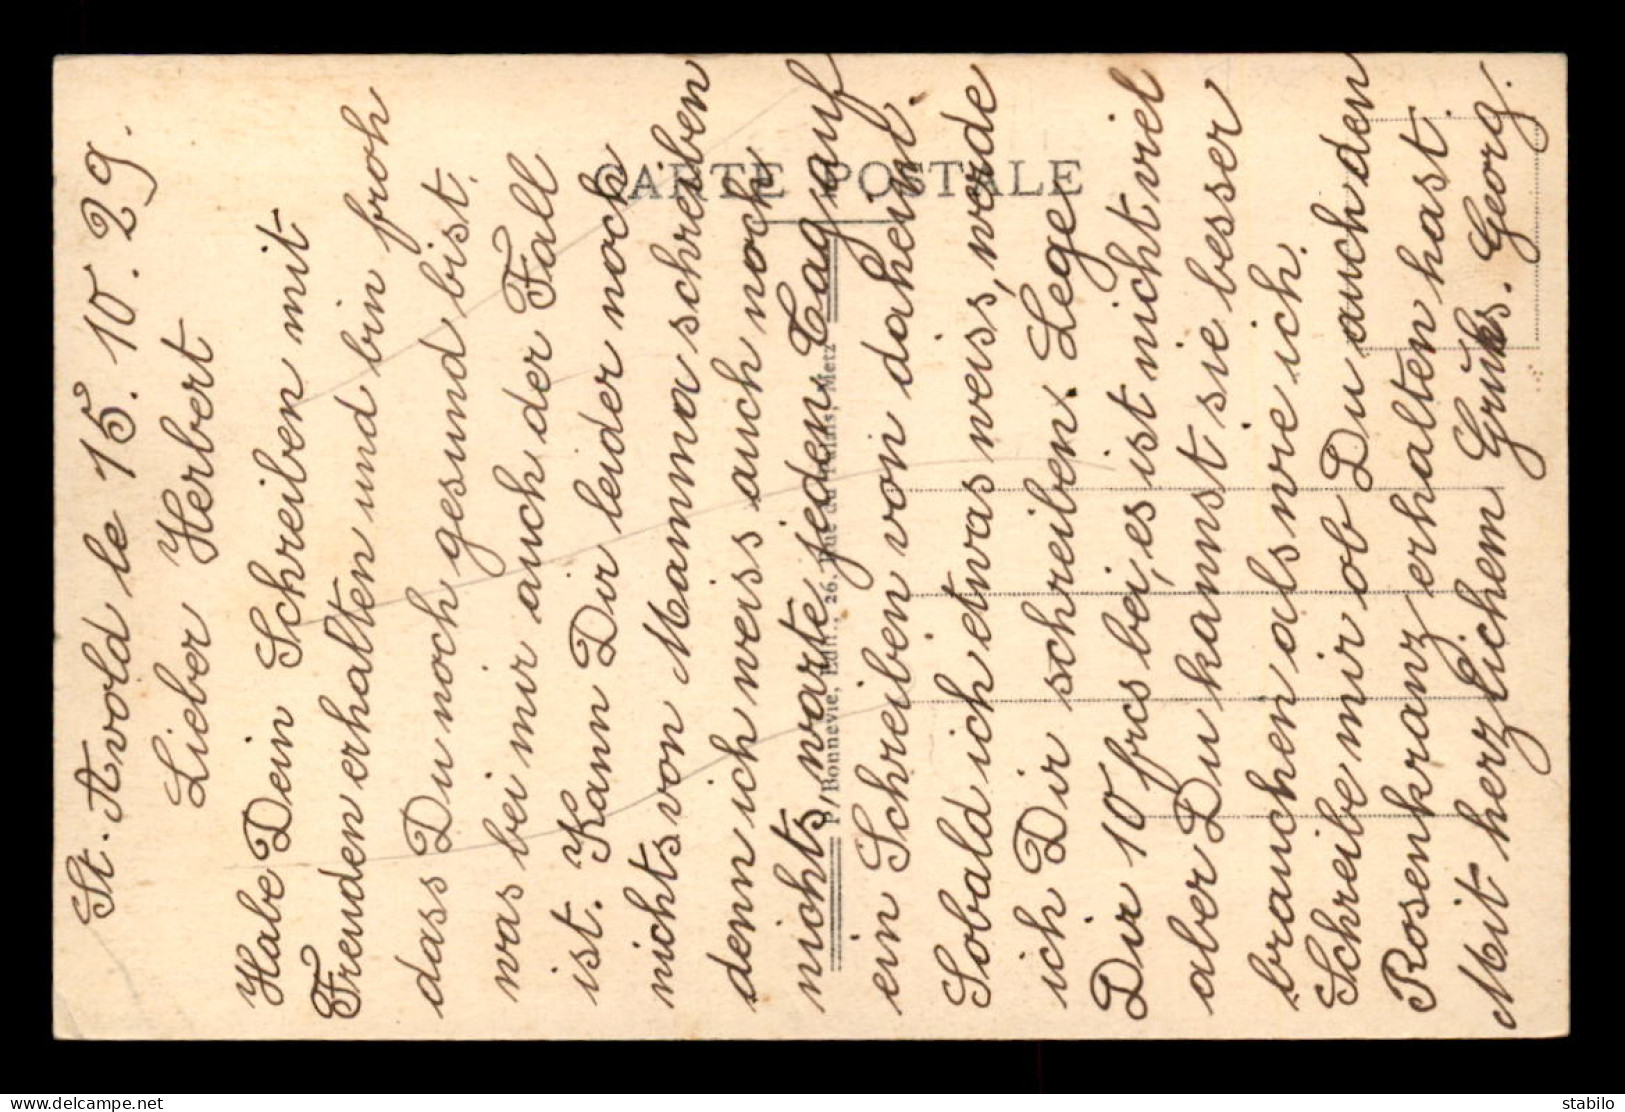 St. Avold le 15. 10. 29.
Lieber Herbert
Habe Dein Schreiben mit
Freuden erhalten und bin froh
dass Du noch gesund bist.
was bei mir auch der Fall
ist. Kann Dir leider noch
nichts von Mamma schreiben
denn ich weiss auch noch
nichts, warte jeden Tag auf
ein Schreiben von daheim.
Sobald ich etwas weiss, werde
ich Dir schreiben. Lege
Dir 10 frcs bei, es ist nicht viel
aber Du kannst sie besser
brauchen als wie ich.
Schreibe mir ob Du auch den
Rosenkranz erhalten hast.
Mit herzlichem Gruhs. Georg.
CARTE POSTALE
P. Bonnevie, Edit., 26, Rue du Palais, Metz
delcampe.net
stabilo